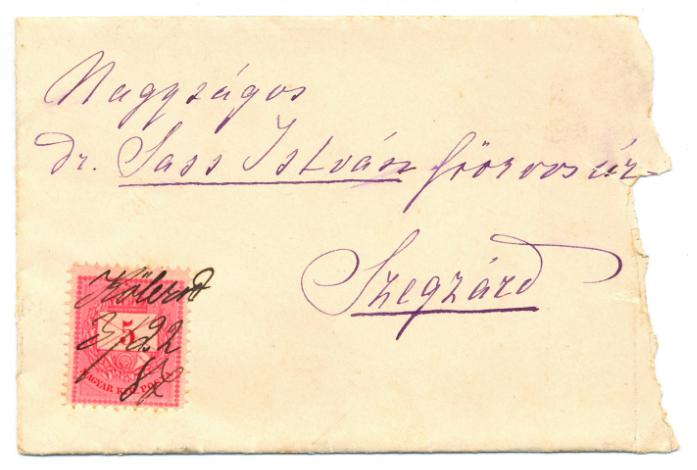 Nagyságos
dr. Sass István főorvos úr-
Szegzárd
Kölesd
5
MAGYAR KIR. POSTA